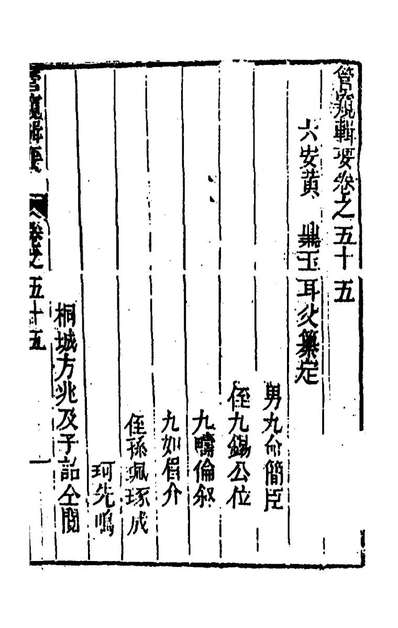 管窺輯要卷之五十五
六安黃 鼎玉耳父纂定
男九命簡臣
侄九錫公位
九疇倫叙
九如眉介
侄孫珮琢成
珂先鳴
桐城方兆及子詒仝閱
管窺輯要 卷之五十五 一